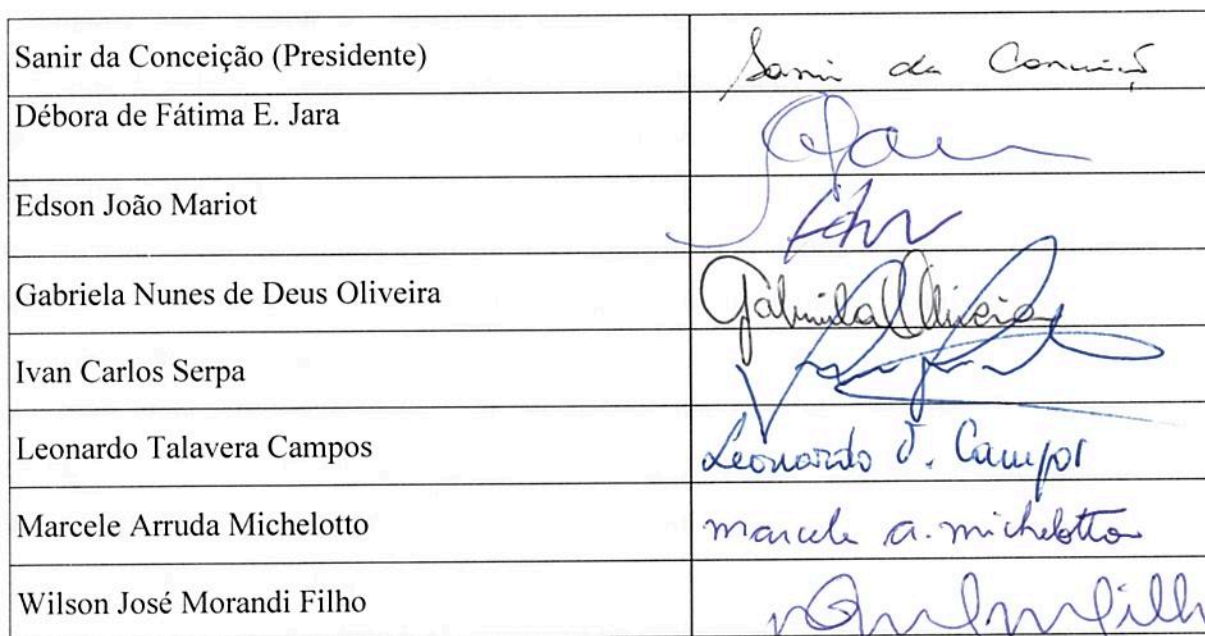 Sanir da Conceição (Presidente)
Sanir da Conceiçã
Débora de Fátima E. Jara
Edson João Mariot
Gabriela Nunes de Deus Oliveira
Gabriela Oliveira
Ivan Carlos Serpa
Leonardo Talavera Campos
Leonardo T. Campos
Marcele Arruda Michelotto
marcele a. michelotto
Wilson José Morandi Filho